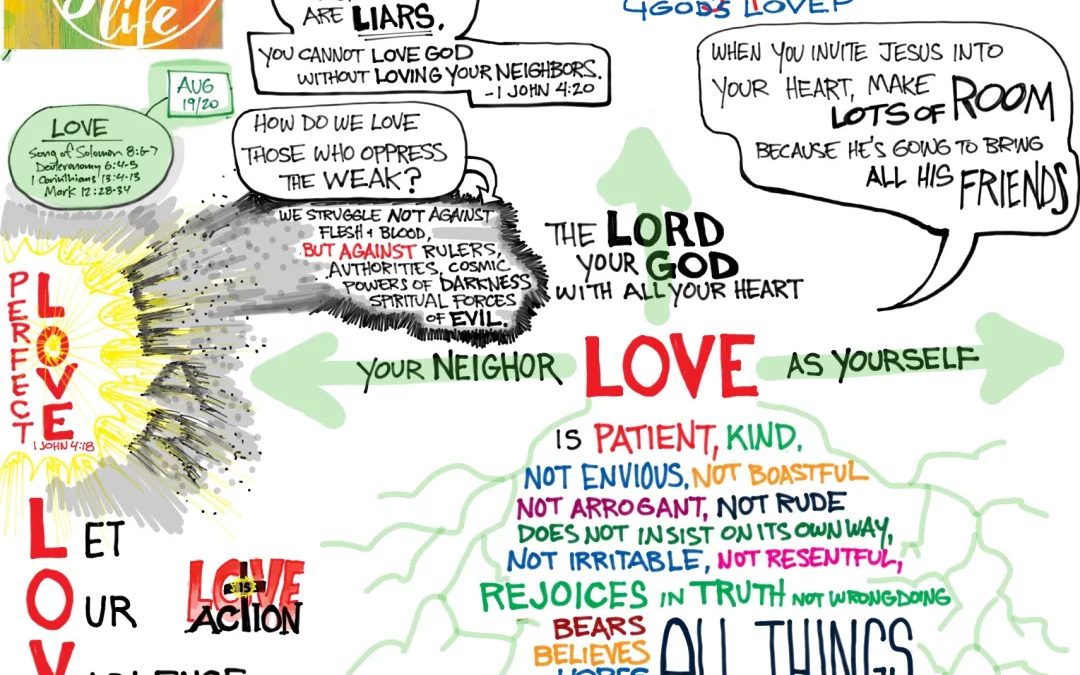 life
ARE LIARS.
YOU CANNOT LOVE GOD
WITHOUT LOVING YOUR NEIGHBORS.
-1 JOHN 4:20
4GODS LOVE?
WHEN YOU INVITE JESUS INTO
YOUR HEART, MAKE
LOTS OF ROOM
BECAUSE HE'S GOING TO BRING
ALL HIS FRIENDS
AUG
19/20
LOVE
Song of Solomon 8:6-7
Deuteronomy 6:4-5
1 Corinthians 13:4-13
Mark 12:28-34
HOW DO WE LOVE
THOSE WHO OPPRESS
THE WEAK?
WE STRUGGLE NOT AGAINST
FLESH + BLOOD,
BUT AGAINST RULERS,
AUTHORITIES, COSMIC
POWERS OF DARKNESS
SPIRITUAL FORCES
OF EVIL.
THE LORD
YOUR GOD
WITH ALL YOUR HEART
YOUR NEIGHOR LOVE AS YOURSELF
PERFECT
LOVE
1 JOHN 4:18
IS PATIENT, KIND.
NOT ENVIOUS, NOT BOASTFUL
NOT ARROGANT, NOT RUDE
DOES NOT INSIST ON ITS OWN WAY,
NOT IRRITABLE, NOT RESENTFUL,
REJOICES IN TRUTH NOT WRONGDOING
BEARS
BELIEVES
HOPES
ALL THINGS
LET
OUR
LOVE
IS
ACTION